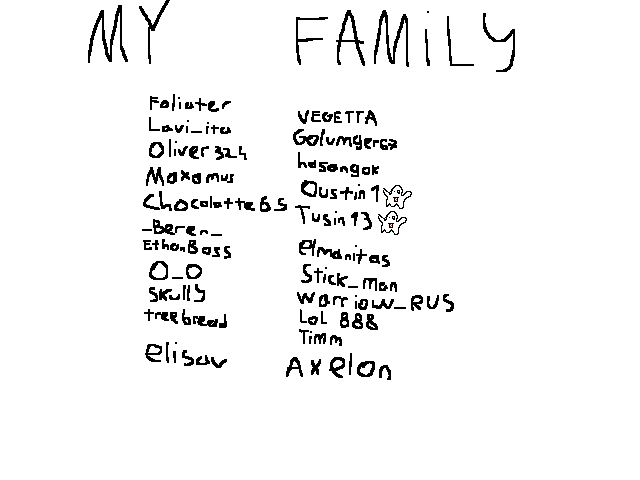 MY FAMiLY
Foliater
Lavi_ita
Oliver324
Maxamus
Chocolatte65
_Beren_
EthanBass
O_O
Skully
treebread
elisav
VEGETTA
hasangok
Oustin1
Tusin13
elmanitas
Stick_man
warriow_RUS
LoL 888
Timm
Axelon